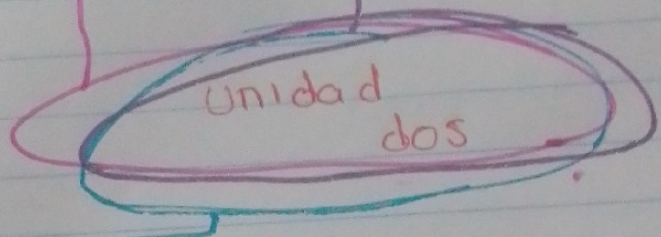 unidad
dos